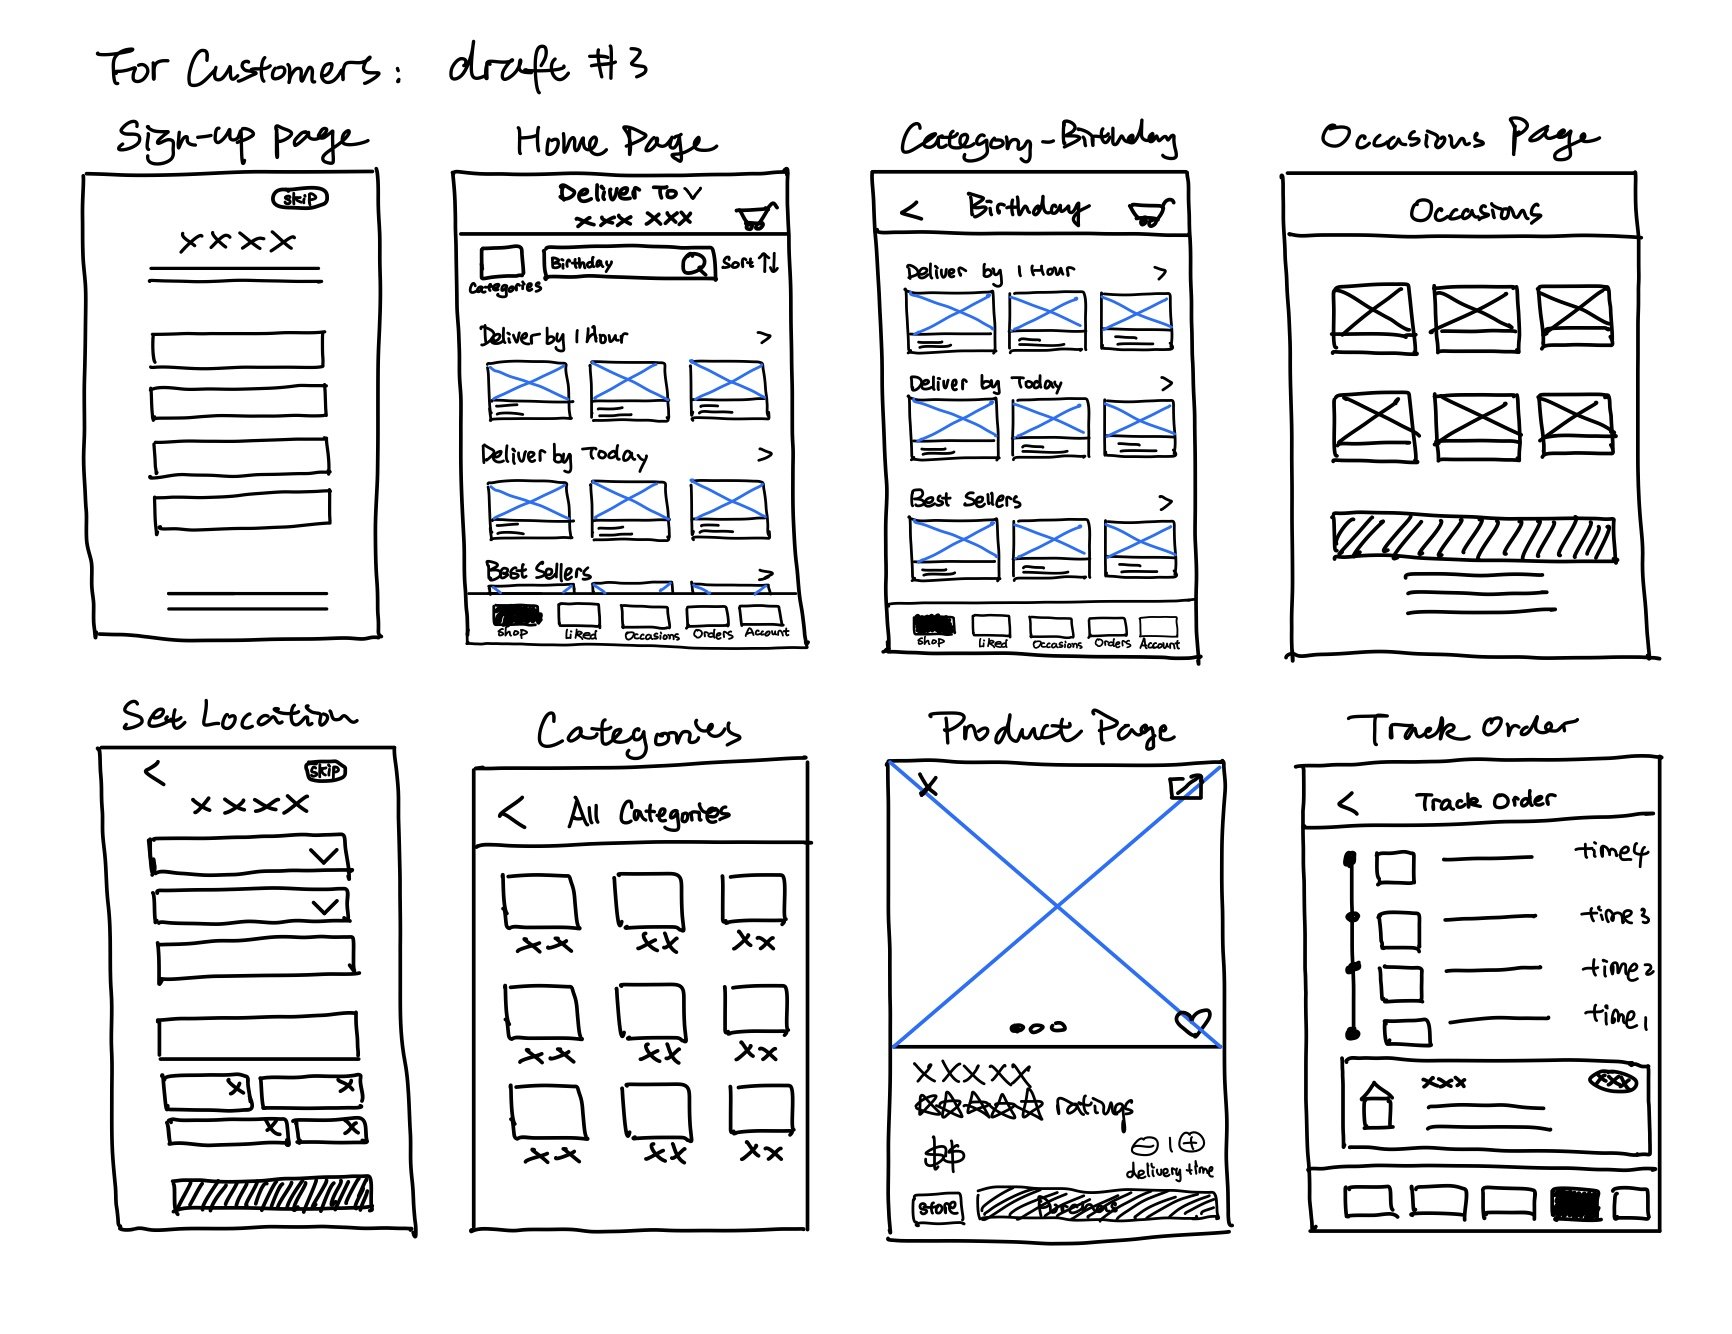 For Customers: draft #3
Sign-up Page
skip
xxxx
Home Page
Deliver To
xxx xxx
Categories
Birthday
Sort ↑↓
Deliver by 1 Hour >
Deliver by Today >
Best Sellers >
Shop Liked Occasions Orders Account
Category-Birthday
< Birthday
Deliver by 1 Hour >
Deliver by Today >
Best Sellers >
Shop Liked Occasions Orders Account
Occasions Page
Occasions
Set Location
<
skip
xxxx
x x
x x
Categories
< All Categories
xx xx xx
xx xx xx
xx xx xx
Product Page
X
xxxxx
☆☆☆☆☆ ratings
$$
- 1 +
delivery time
Store
Purchase
Track Order
< Track Order
time4
time3
time2
time1
xxx
xxx